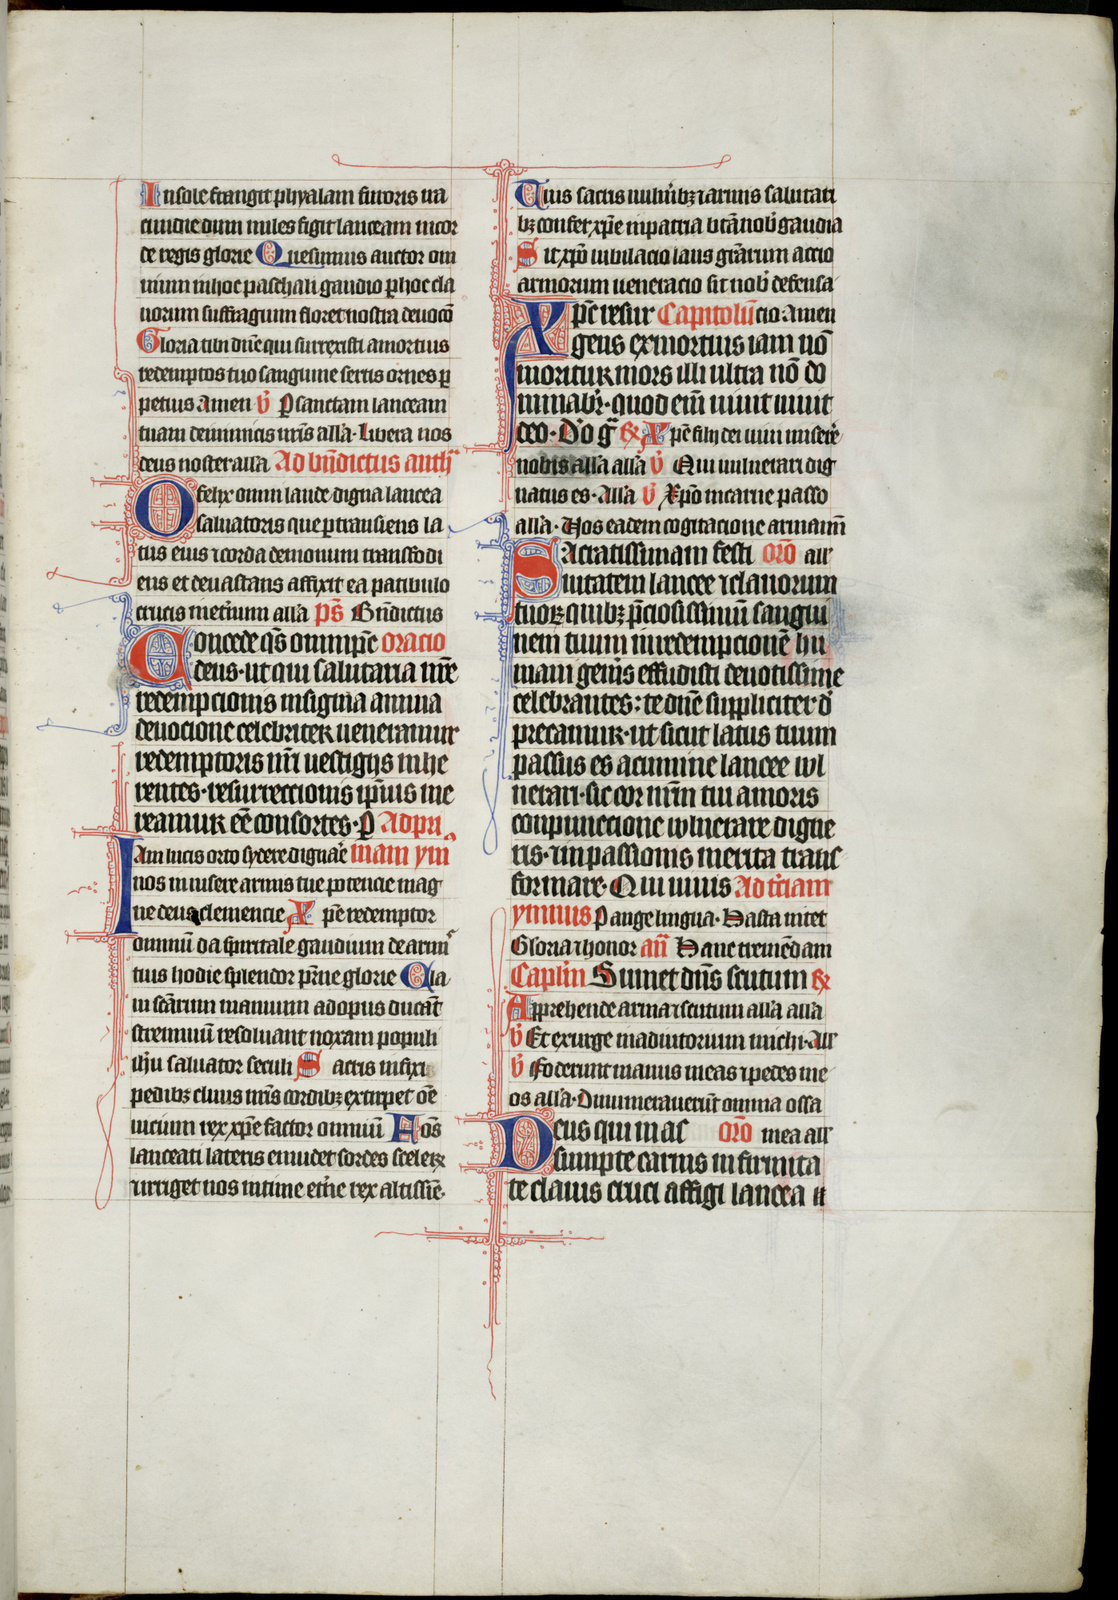 In sole frangit phyalam furoris ira
cundie dum miles figit lanceam in cor
de regis glorie Quesumus auctor om
nium in hoc paschali gaudio p̱ hoc cla
uorum suffragium floret nostra deuocō
Gloria tibi dn̄e qui surrexisti a mortuis
redemptos tuo sanguine sertis ornes p̱
petuis Amen v̄ P̱ sanctam lanceam
tuam de inimicis nr̄is all'a · Libera nos
deus noster all'a Ad bn̄dictus anth'
O felix omni laude digna lancea
saluatoris que p̱transiens la
tus eius ⁊ corda demonum transfodi
ens et deuastans affixit ea patibulo
crucis in et'num all'a ps̄ Bn̄dictus
Concede qs̄ omnip̄c oracio
deus · ut qui salutaria nr̄e
redempcionis insignia annua
deuocione celebriter ueneramur
redemptoris nr̄i uestigijs inhe
rentes · resurreccionis ip̄ius me
reamur eē consortes · p̱ Ad pri
Iam lucis orto sydere digna're mam ym̄
nos munire armis tue potencie mag
ne deus clemencie Xp̄e redemptor
omniū da sp̄iritale gaudium de armꝰ
tuis hodie splendor p̄rne glorie Cla
ui sc̄ārum manuum ad opus ducāt
strennuū resoluant noxam populi
ih̄u saluator seculi Sacris infixi
pedibȝ cliuus nr̄is cordibȝ extirpet oē
uicium rex xp̄e factor omniū Fōs
lanceati lateris emūdet sordes scelerꝝ
urriget nos intime et'ne rex altissīe ·
Tuis sacris uuln'ibȝ ⁊ armis salutari
bȝ confer xp̄e in patria btā nob' gaudia
Sit xp̄o iubilacio laus gr̄arum accio
armorum ueneracio sit nob' defensa
Xp̄c resur Capitolū cio Amen
gens ex mortuis iam nō
moritur mors illi ultra nō do
minabr̄ · quod em̄ uiuit uiuit
deo · D'o ḡ R' Xp̄e fili dei uiui misere
nobis all'a all'a v̄ Qui uulnerari dig
natus es · All'a v̄ Xp̄o in carne passo
all'a · Uos eadem cogitacione armam̄
Sacratissimam festi orō all'
Suitatem lancee ⁊ clauorum
tuoꝝ quibȝ p̄ciosissimū sangui
nem tuum in redempcionē hu
mani genꝰis effudisti deuotissime
celebrantes : te dn̄e suppliciter d'
precamur · ut sicut latus tuum
passus es acumine lancee wl
nerari · sic cor nr̄m tui amoris
conpunccione wlnerare digne
ris · in passionis merita trans
formare · Qui uiuis Ad t'ciam
ymnus Pange lingua · Hasta nitet
Gloria ⁊ honor an̄ Hanc tremēdam
Caplm̄ Sumet dn̄s scutum R'
Apprehende arma ⁊ scutum all'a all'a
v̄ Et exurge in adiutorium michi · all'
v̄ Foderunt manus meas ⁊ pedes me
os all'a · Dinumerauerūt omnia ossa
Deus qui in ac orō mea all'
ssumpte carnis infirmita
te clauis cruci affigi lancea